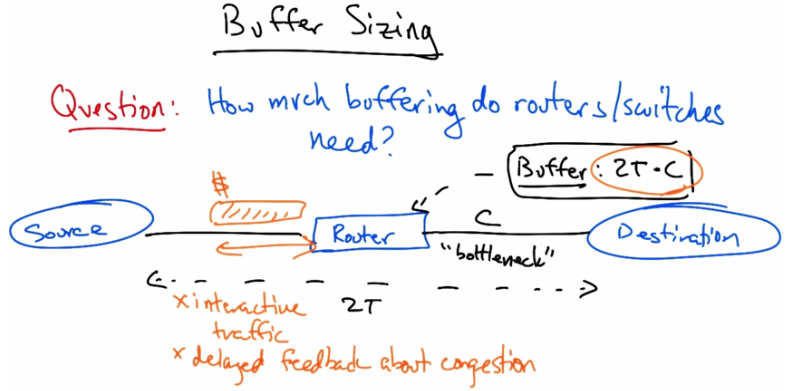 Buffer Sizing
Question: How much buffering do routers/switches
need?
Buffer: 2T·C
$
Source
Router
C
"bottleneck"
Destination
2T
x interactive
traffic
x delayed feedback about congestion